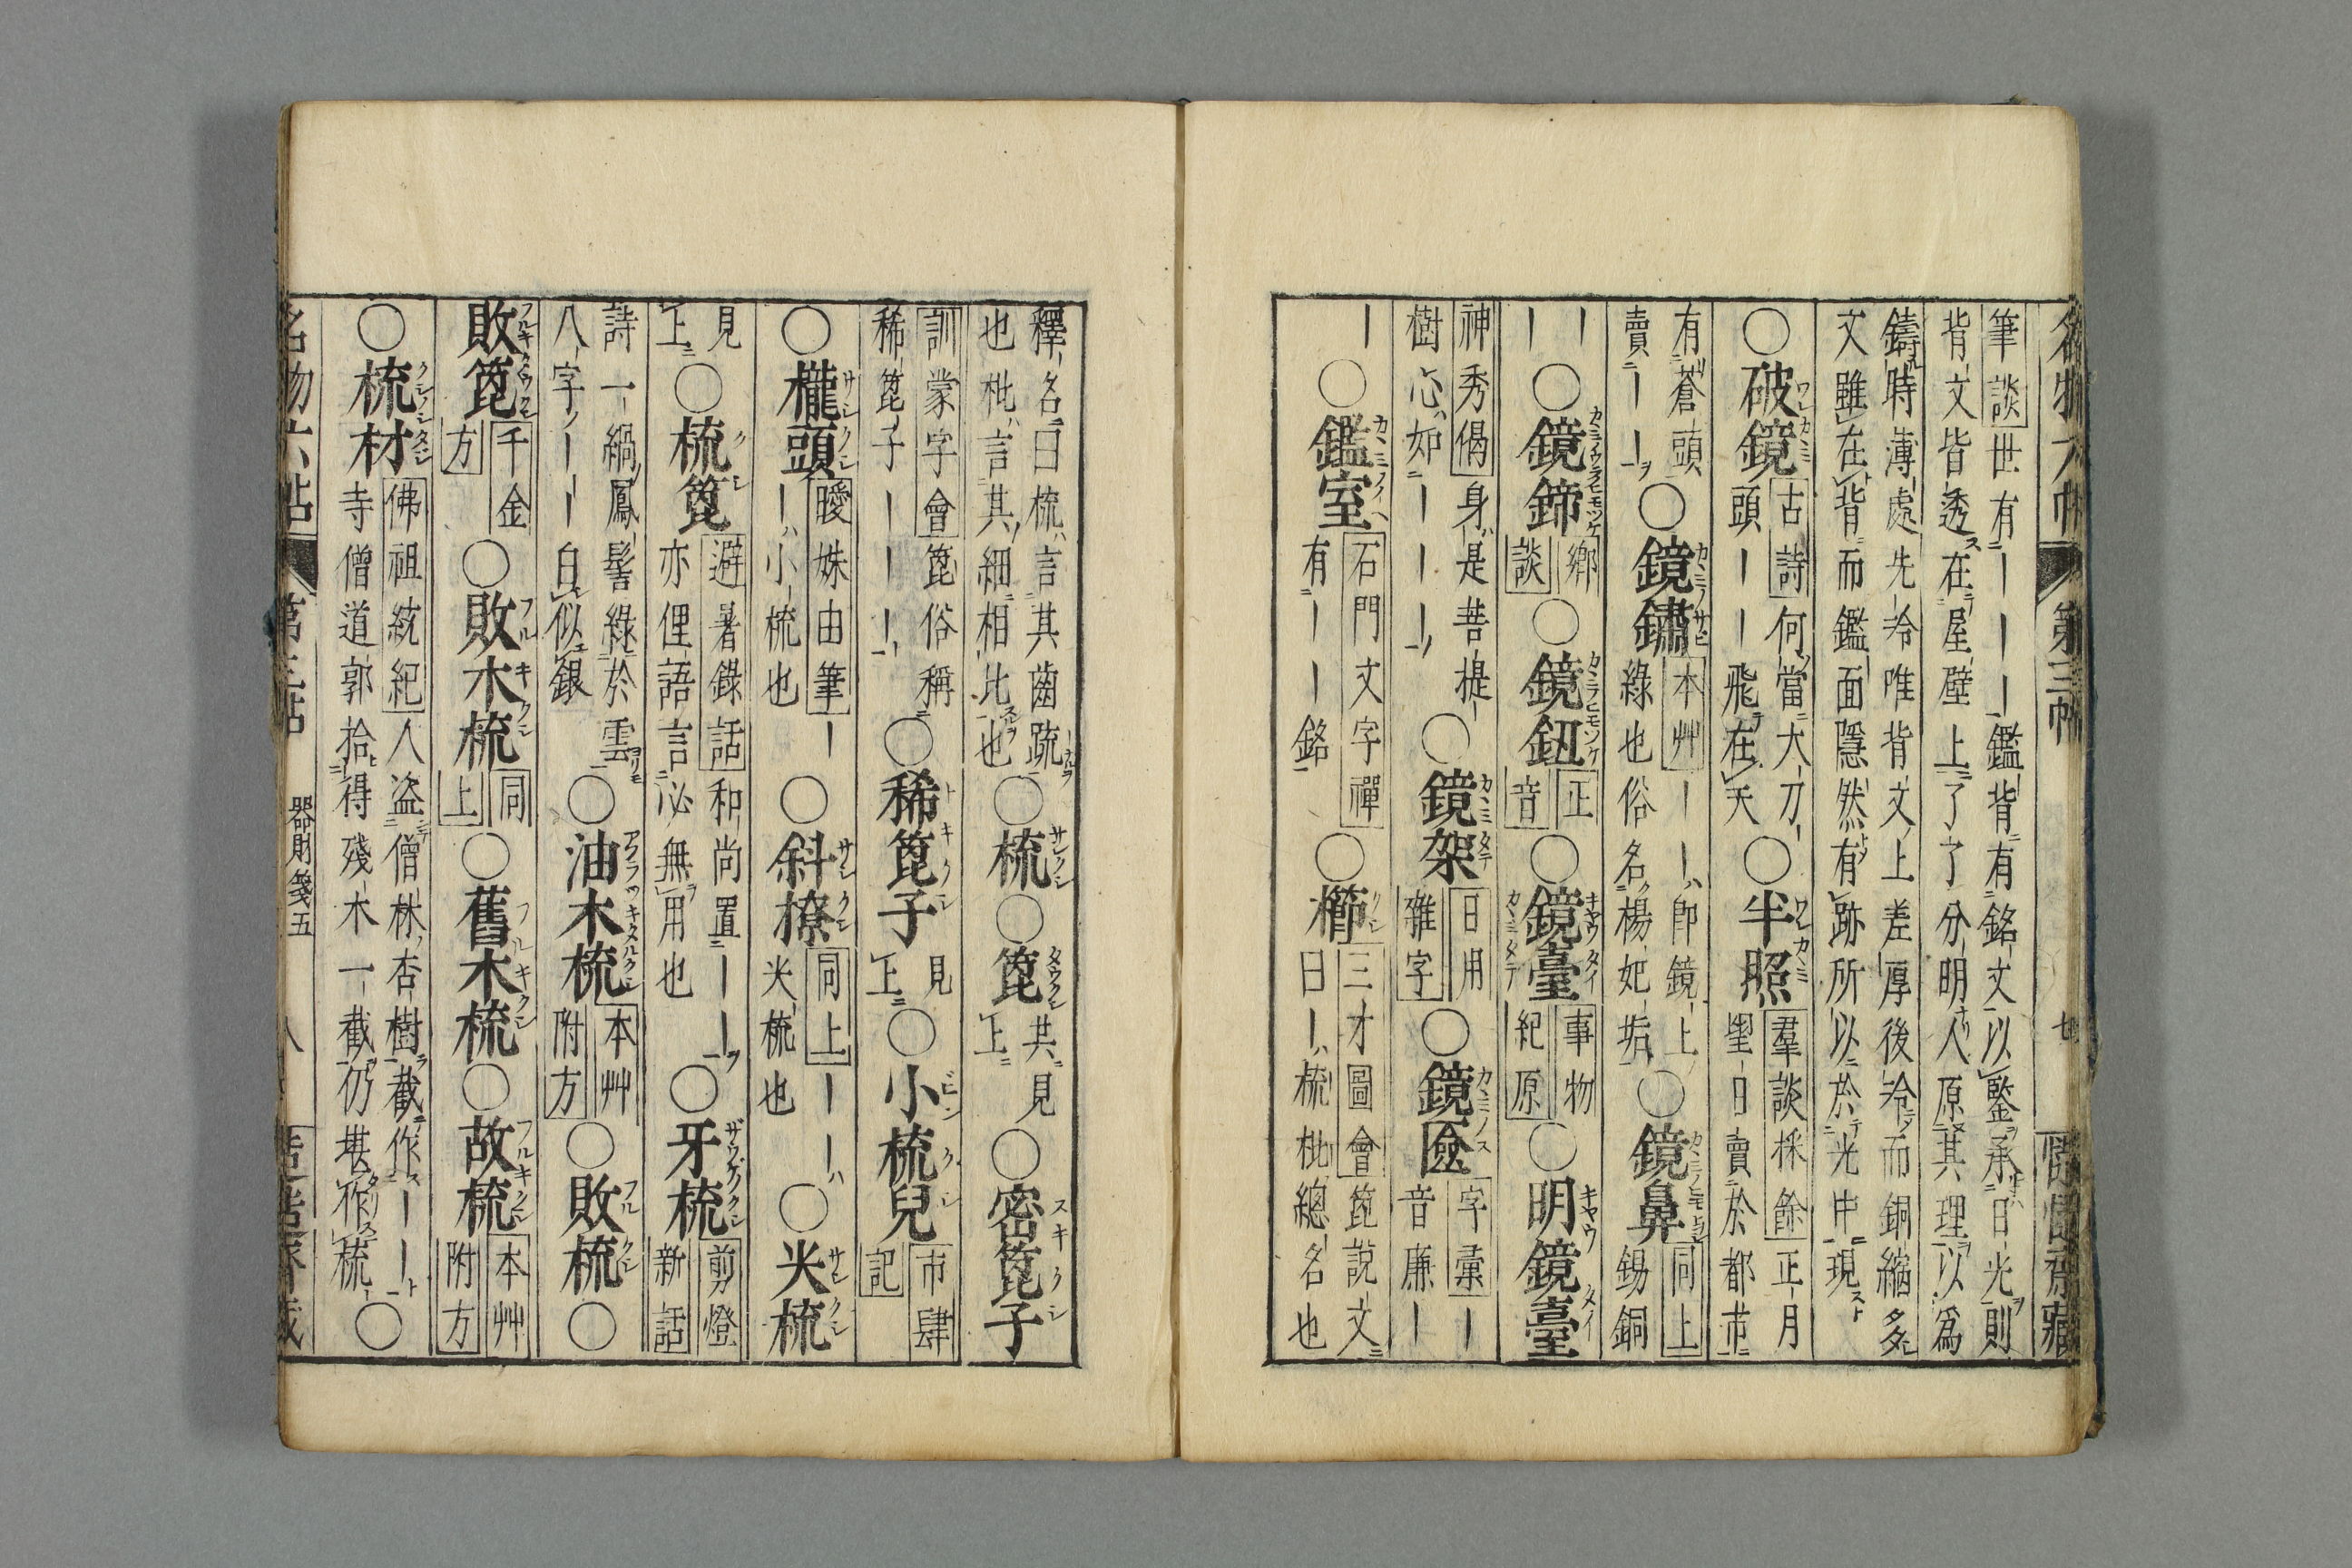 名物六帖 第三帖 七 𢡱慥齋藏
筆談世有｜｜｜鑑背有銘文以鑒承日光則
背文皆透在屋壁上了了分明人原其理以爲
鑄時薄處先冷唯背文上差厚後冷而銅縮多
文雖在背而鑑面隱然有跡所以於光中現
○破鏡 古詩何當大刀頭｜｜飛在天 ○半照 羣談採餘正月望日賣於都市
有蒼頭賣｜｜ ○鏡鏽 本艸｜｜卽鏡上綠也俗名楊妃垢 ○鏡鼻 同上錫銅
｜｜ ○鏡鍗 鄉談 ○鏡鈕 正音 ○鏡臺 事物紀原 ○明鏡臺
神秀偈身是菩提樹心如｜｜｜ ○鏡架 日用雜字 ○鏡匳 字彙｜音廉｜
｜ ○鑑室 石門文字禪有｜｜｜銘 ○櫛 三才圖會篦說文曰｜梳枇總名也
釋名曰梳言其齒疏也枇言其細相比也 ○梳 ○篦 共見上 ○密篦子
訓蒙字會篦俗稱稀篦子｜｜｜ ○稀篦子 見上 ○小梳兒 市肆記
○櫳頭 曖姝由筆｜｜小梳也 ○斜撩 同上｜｜夾梳也 ○夾梳
見上 ○梳篦 避暑錄話和尚置｜｜亦俚語言必無用也 ○牙梳 剪燈新話
詩一緺鳳髻綠於雲八字｜｜白似銀 ○油木梳 本艸附方 ○敗梳 ○
敗篦 千金方 ○敗木梳 同上 ○舊木梳 ○故梳 本艸附方
○梳材 佛祖統紀人盜僧林杏樹截作｜｜寺僧道郭拾得殘木一截仍堪作梳 ○
名物六帖 第三帖 器財箋五 八